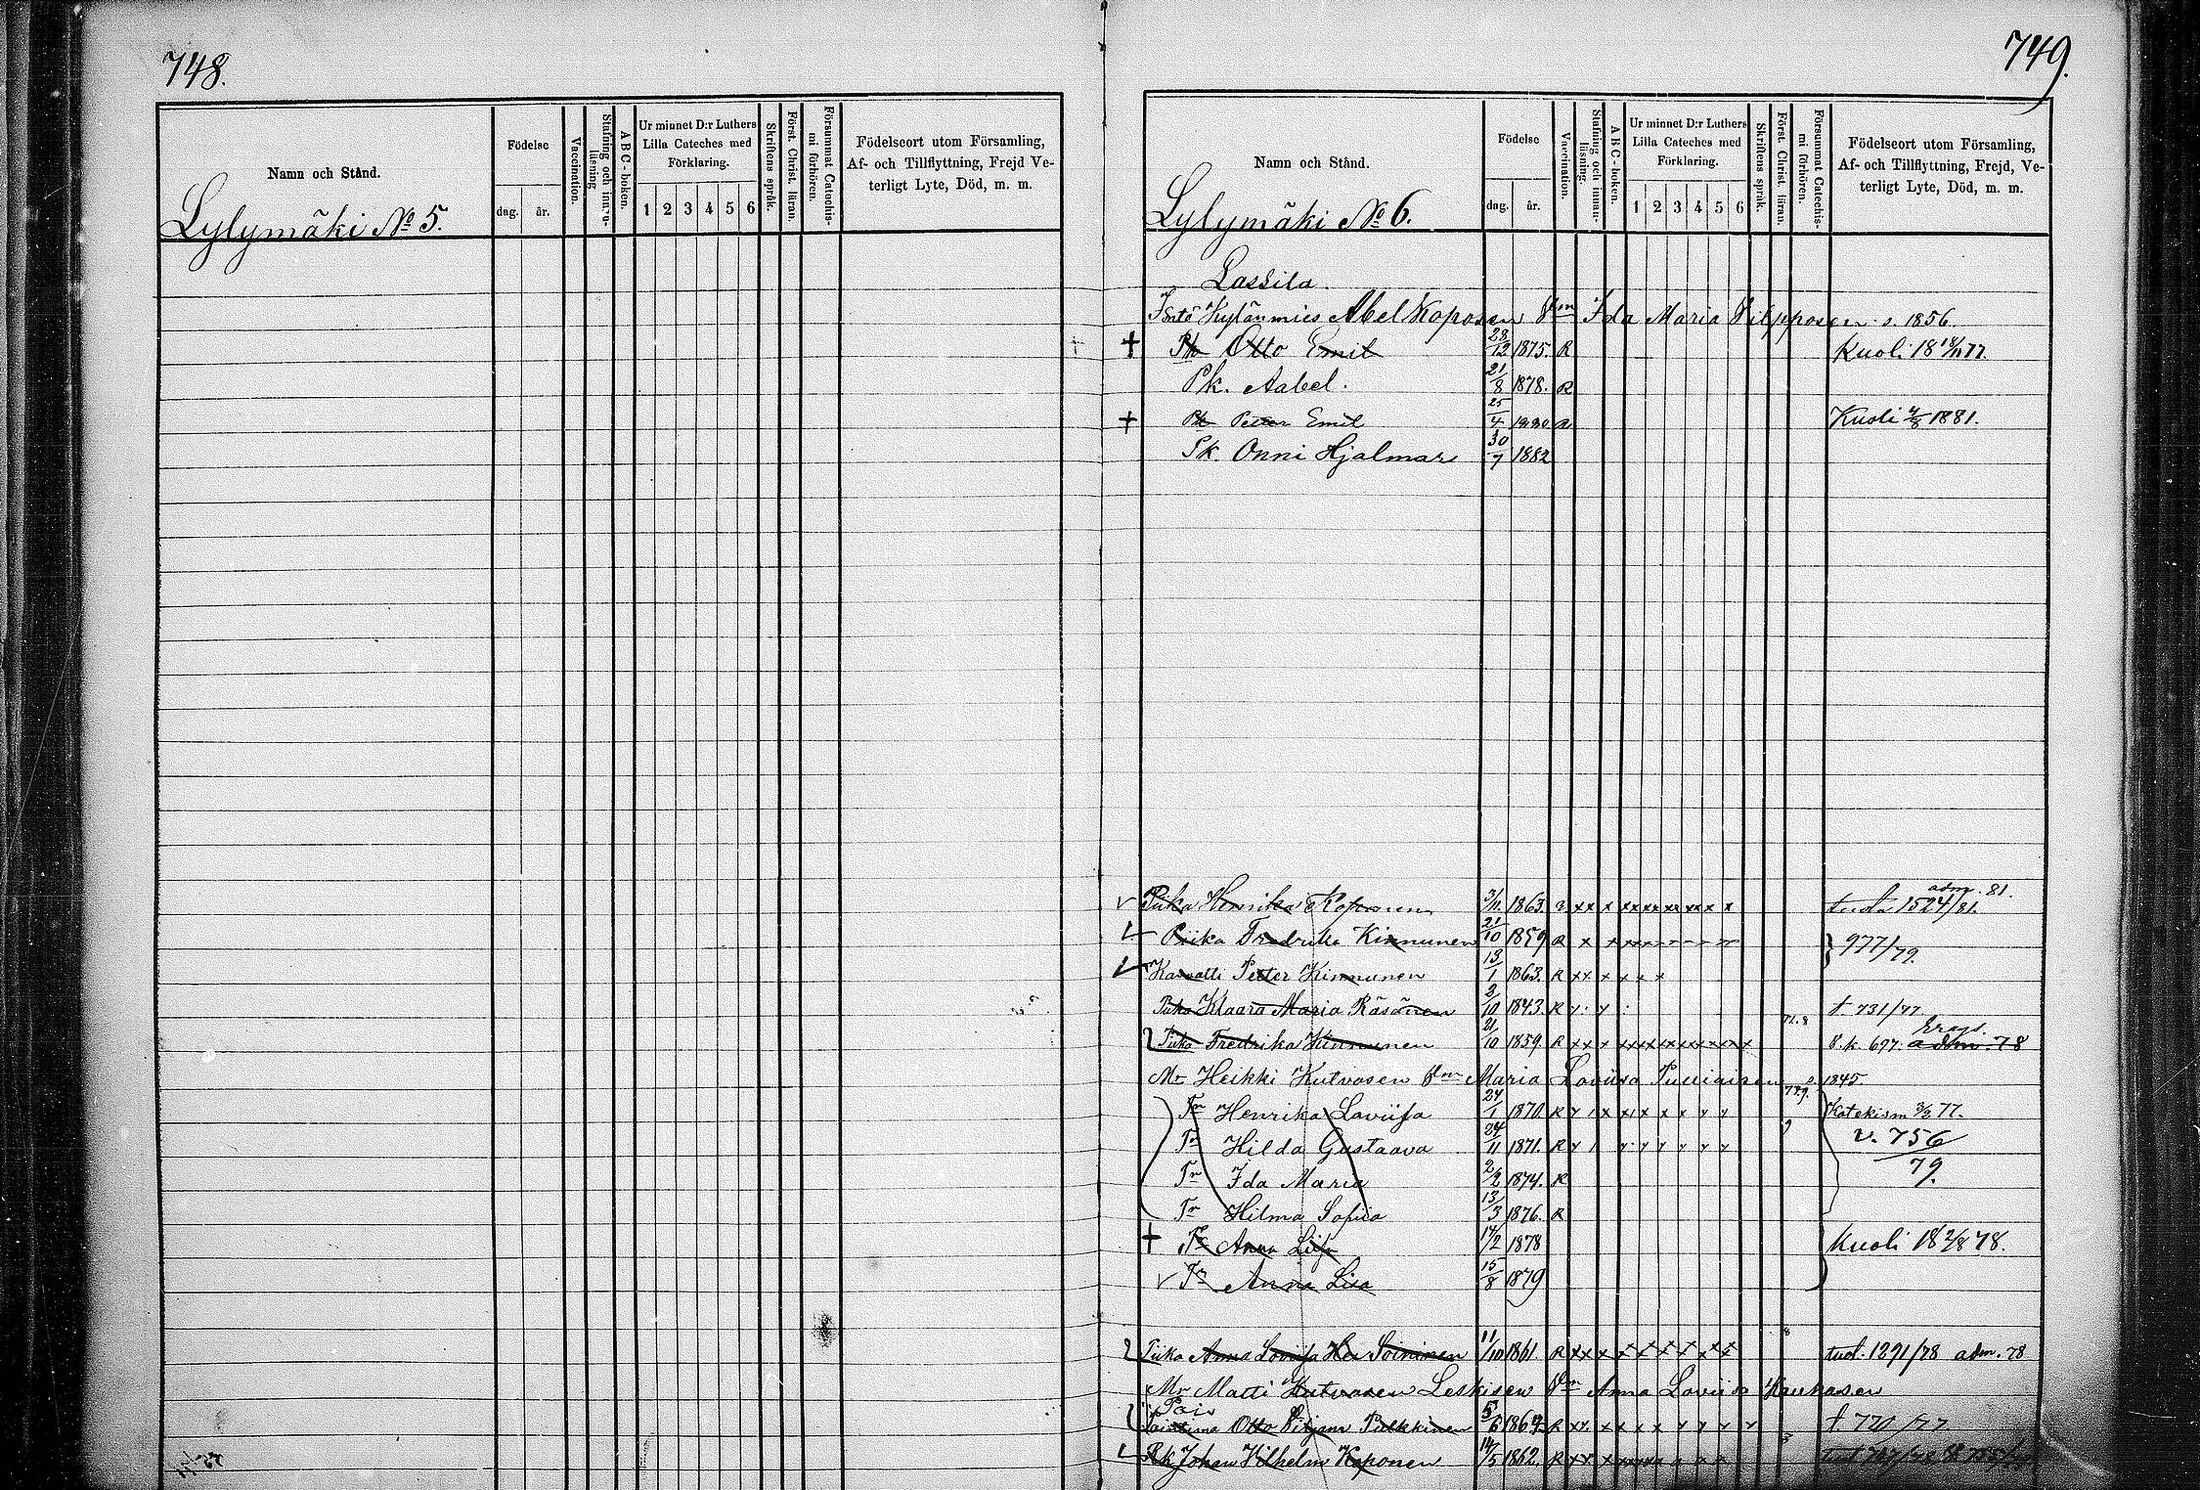 748.
Namn och Stånd.
Födelse
dag. år.
Vaccination.
Stafning och innan-läsning
ABC-boken.
Ur minnet D:r Luthers
Lilla Cateches med
Förklaring.
1 2 3 4 5 6
Skriftens språk.
Först. Christ. läran.
Försummat Catechis-
mi förhören.
Födelseort utom Församling,
Af- och Tillflyttning, Frejd Ve-
terligt Lyte, Död, m. m.
Lylymäki No 5.
749.
Namn och Stånd.
Födelse
dag. år.
Vaccination.
Stafning och innan-läsning.
ABC-boken.
Ur minnet D:r Luthers
Lilla Cateches med
Förklaring.
1 2 3 4 5 6
Skriftens språk.
Först. Christ. läran.
Försummat Catechis-
mi förhören.
Födelseort utom Församling,
Af- och Tillflyttning, Frejd, Ve-
terligt Lyte, Död, m. m.
Lylymäki No 6.
Lassila.
Abel Koponen Ida Maria s. 1856.
Otto Emil 23/12 1875. R Kuoli 18 18/11 77.
Pk. Aabel. 21/8 1878. R
Petter Emil 25/4 1880 R Kuoli 4/8 1881.
Pk. Onni Hjalmar 30/7 1882
Piika Henrika Koponen 3/11 1863. adm. 81. 1524/81.
Piika Fredrika Kinnunen 21/10 1859 R 977/79.
Petter Kinnunen 13/1 1863. R
Piika Klaara Maria Räsänen 2/10 1843. R t 731/77
Piika Fredrika Kinnunen 21/10 1859. R 697. adm. 78
Mr Heikki Kutvosen Maria Loviisa s. 1845.
Tr Henrika Loviisa 24/1 1870. R Katekism 3/3 77.
Tr Hilda Gustaava 24/11 1871. R v. 756/79.
Tr Ida Maria 2/2 1874. R
Tr Hilma Sofiia 13/3 1876. R
Tr Anna Liisa 14/2 1878 Kuoli 18 2/8 78.
Tr Anna Lisa 15/8 1879
Piika Anna Loviisa Soininen 11/10 1861. R tuol. 1291/78 adm. 78
Mr Matti Kutvosen Leskisen Anna Loviisa
Otto Pulkkinen 5/6 1864 R t. 720/77.
Pk Johan Vilhelm Koponen 14/5 1862. R